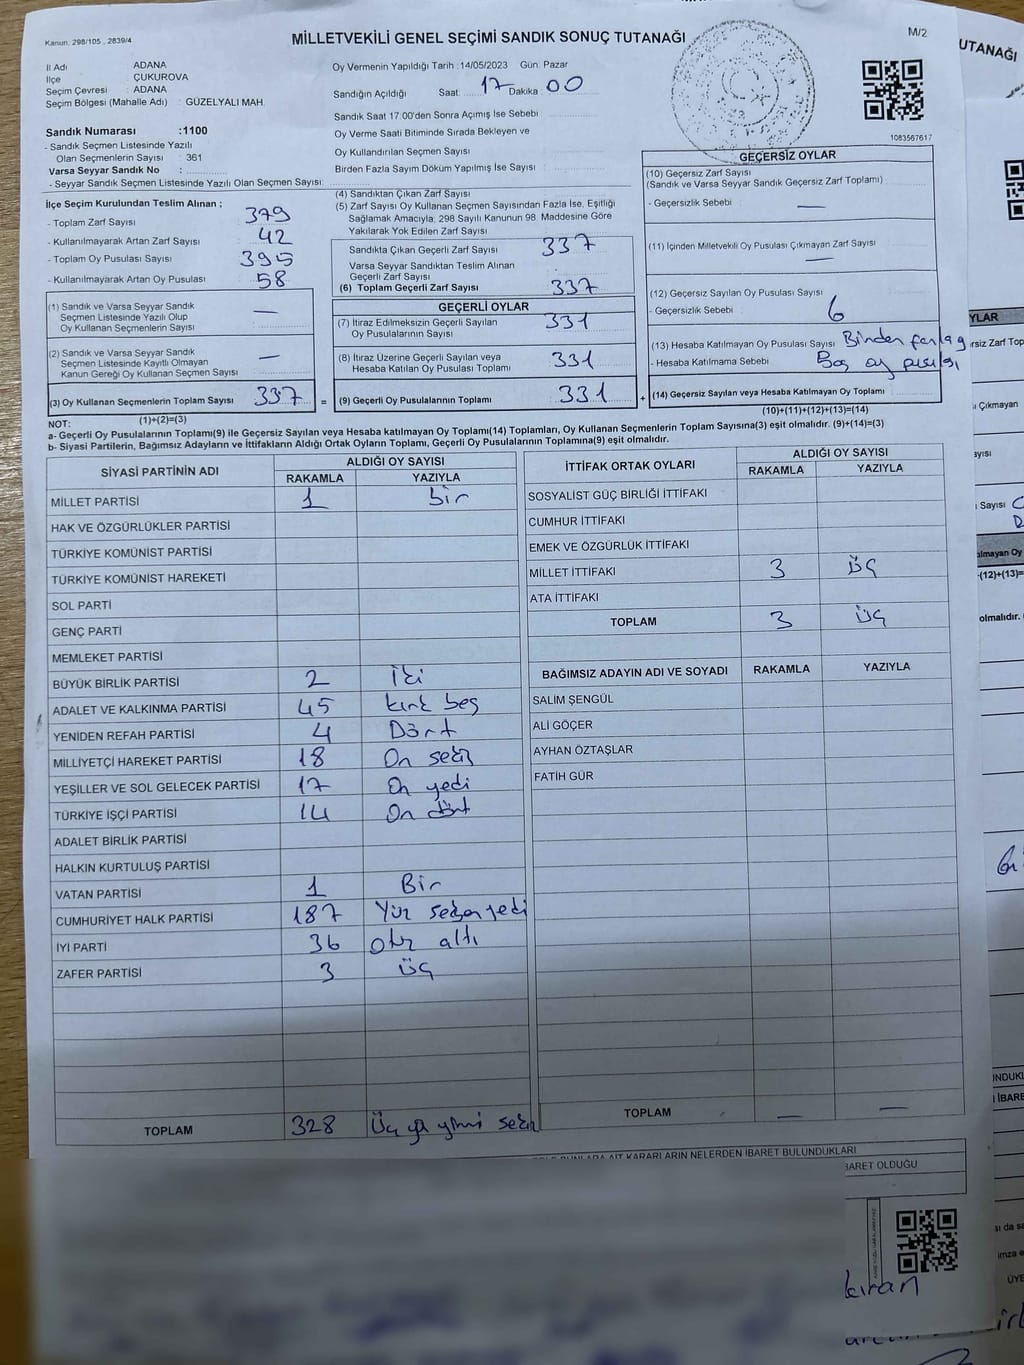 Kanun. 298/105 , 2839/4
MİLLETVEKİLİ GENEL SEÇİMİ SANDIK SONUÇ TUTANAĞI
M/2
İl Adı ADANA
İlçe ÇUKUROVA
Seçim Çevresi : ADANA
Seçim Bölgesi (Mahalle Adı) : GÜZELYALI MAH.
Sandık Numarası :1100
- Sandık Seçmen Listesinde Yazılı
Olan Seçmenlerin Sayısı : 361
Varsa Seyyar Sandık No :
- Seyyar Sandık Seçmen Listesinde Yazılı Olan Seçmen Sayısı:
İlçe Seçim Kurulundan Teslim Alınan ;
- Toplam Zarf Sayısı 379
- Kullanılmayarak Artan Zarf Sayısı 42
- Toplam Oy Pusulası Sayısı 395
- Kullanılmayarak Artan Oy Pusulası 58
(1) Sandık ve Varsa Seyyar Sandık
Seçmen Listesinde Yazılı Olup
Oy Kullanan Seçmenlerin Sayısı : —
(2) Sandık ve Varsa Seyyar Sandık
Seçmen Listesinde Kayıtlı Olmayan
Kanun Gereği Oy Kullanan Seçmen Sayısı —
(3) Oy Kullanan Seçmenlerin Toplam Sayısı 337 =
(1)+(2)=(3)
Oy Vermenin Yapıldığı Tarih :14/05/2023 Gün: Pazar
Sandığın Açıldığı Saat: 17 Dakika 00
Sandık Saat 17:00'den Sonra Açımış İse Sebebi
Oy Verme Saati Bitiminde Sırada Bekleyen ve
Oy Kullandırılan Seçmen Sayısı
Birden Fazla Sayım Döküm Yapılmış İse Sayısı
(4) Sandıktan Çıkan Zarf Sayısı
(5) Zarf Sayısı Oy Kullanan Seçmen Sayısından Fazla İse, Eşitliği
Sağlamak Amacıyla, 298 Sayılı Kanunun 98. Maddesine Göre
Yakılarak Yok Edilen Zarf Sayısı
Sandıkta Çıkan Geçerli Zarf Sayısı 337
Varsa Seyyar Sandıktan Teslim Alınan
Geçerli Zarf Sayısı
(6) Toplam Geçerli Zarf Sayısı 337
GEÇERLİ OYLAR
(7) İtiraz Edilmeksizin Geçerli Sayılan
Oy Pusulalarının Sayısı 331
(8) İtiraz Üzerine Geçerli Sayılan veya
Hesaba Katılan Oy Pusulası Toplamı 331
(9) Geçerli Oy Pusulalarının Toplamı 331 +
1083567617
GEÇERSİZ OYLAR
(10) Geçersiz Zarf Sayısı
(Sandık ve Varsa Seyyar Sandık Geçersiz Zarf Toplamı)
- Geçersizlik Sebebi —
(11) İçinden Milletvekili Oy Pusulası Çıkmayan Zarf Sayısı
—
(12) Geçersiz Sayılan Oy Pusulası Sayısı
- Geçersizlik Sebebi : 6
(13) Hesaba Katılmayan Oy Pusulası Sayısı Birden fazla
- Hesaba Katılmama Sebebi Boş oy pusulası
(14) Geçersiz Sayılan veya Hesaba Katılmayan Oy Toplamı
(10)+(11)+(12)+(13)=(14)
NOT:
a- Geçerli Oy Pusulalarının Toplamı(9) ile Geçersiz Sayılan veya Hesaba katılmayan Oy Toplamı(14) Toplamları, Oy Kullanan Seçmenlerin Toplam Sayısına(3) eşit olmalıdır. (9)+(14)=(3)
b- Siyasi Partilerin, Bağımsız Adayların ve İttifakların Aldığı Ortak Oyların Toplamı, Geçerli Oy Pusulalarının Toplamına(9) eşit olmalıdır.
SİYASİ PARTİNİN ADI ALDIĞI OY SAYISI
RAKAMLA YAZIYLA
MİLLET PARTİSİ 1 bir
HAK VE ÖZGÜRLÜKLER PARTİSİ
TÜRKİYE KOMÜNİST PARTİSİ
TÜRKİYE KOMÜNİST HAREKETİ
SOL PARTİ
GENÇ PARTİ
MEMLEKET PARTİSİ
BÜYÜK BİRLİK PARTİSİ 2 İki
ADALET VE KALKINMA PARTİSİ 45 kırk beş
YENİDEN REFAH PARTİSİ 4 Dört
MİLLİYETÇİ HAREKET PARTİSİ 18 On sekiz
YEŞİLLER VE SOL GELECEK PARTİSİ 17 On yedi
TÜRKİYE İŞÇİ PARTİSİ 14 On dört
ADALET BİRLİK PARTİSİ
HALKIN KURTULUŞ PARTİSİ
VATAN PARTİSİ 1 Bir
CUMHURİYET HALK PARTİSİ 187 Yüz seksen yedi
İYİ PARTİ 36 otuz altı
ZAFER PARTİSİ 3 üç
TOPLAM 328 Üç yüz yirmi sekiz
İTTİFAK ORTAK OYLARI ALDIĞI OY SAYISI
RAKAMLA YAZIYLA
SOSYALİST GÜÇ BİRLİĞİ İTTİFAKI
CUMHUR İTTİFAKI
EMEK VE ÖZGÜRLÜK İTTİFAKI
MİLLET İTTİFAKI 3 üç
ATA İTTİFAKI
TOPLAM 3 üç
BAĞIMSIZ ADAYIN ADI VE SOYADI RAKAMLA YAZIYLA
SALİM ŞENGÜL
ALİ GÖÇER
AYHAN ÖZTAŞLAR
FATİH GÜR
TOPLAM — —
AİT KARARLARIN NELERDEN İBARET BULUNDUKLARI
BARET OLDUĞU
kıran
UTANAĞI
YLAR
rsiz Zarf Top
Çıkmayan
ayısı
Sayısı
olmayan Oy
(12)+(13)=
olmalıdır.